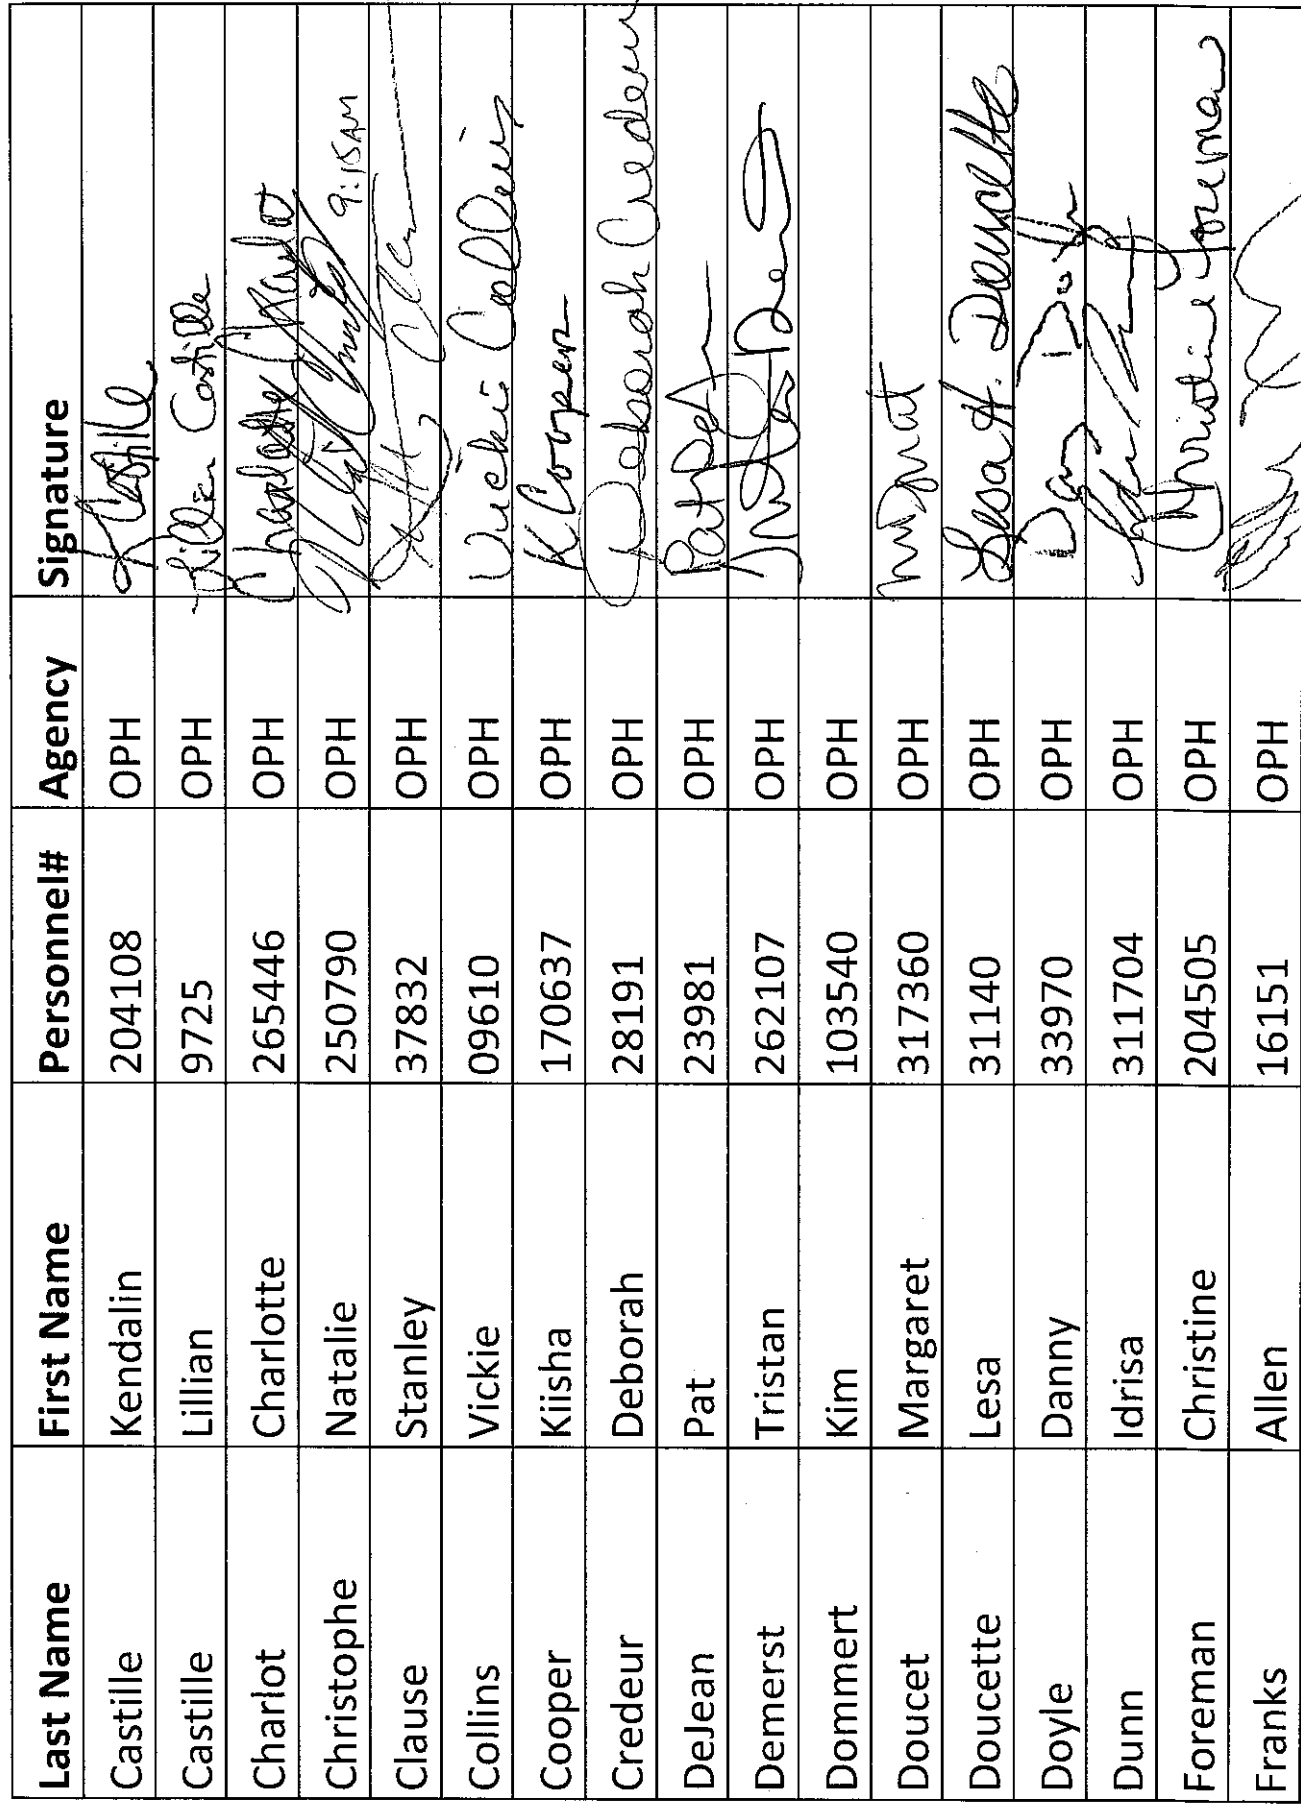 Last Name First Name Personnel# Agency Signature
Castille Kendalin 204108 OPH
Castille Lillian 9725 OPH Lillian Castille
Charlot Charlotte 265446 OPH Charlotte Charlot
Christophe Natalie 250790 OPH 9:15AM
Clause Stanley 37832 OPH
Collins Vickie 09610 OPH Vickie Collins
Cooper Kiisha 170637 OPH K Cooper
Credeur Deborah 28191 OPH Deborah Credeur
DeJean Pat 23981 OPH Pat
Demerst Tristan 262107 OPH
Dommert Kim 103540 OPH
Doucet Margaret 317360 OPH
Doucette Lesa 31140 OPH Lesa H. Doucette
Doyle Danny 33970 OPH
Dunn Idrisa 311704 OPH
Foreman Christine 204505 OPH Christine Foreman
Franks Allen 16151 OPH